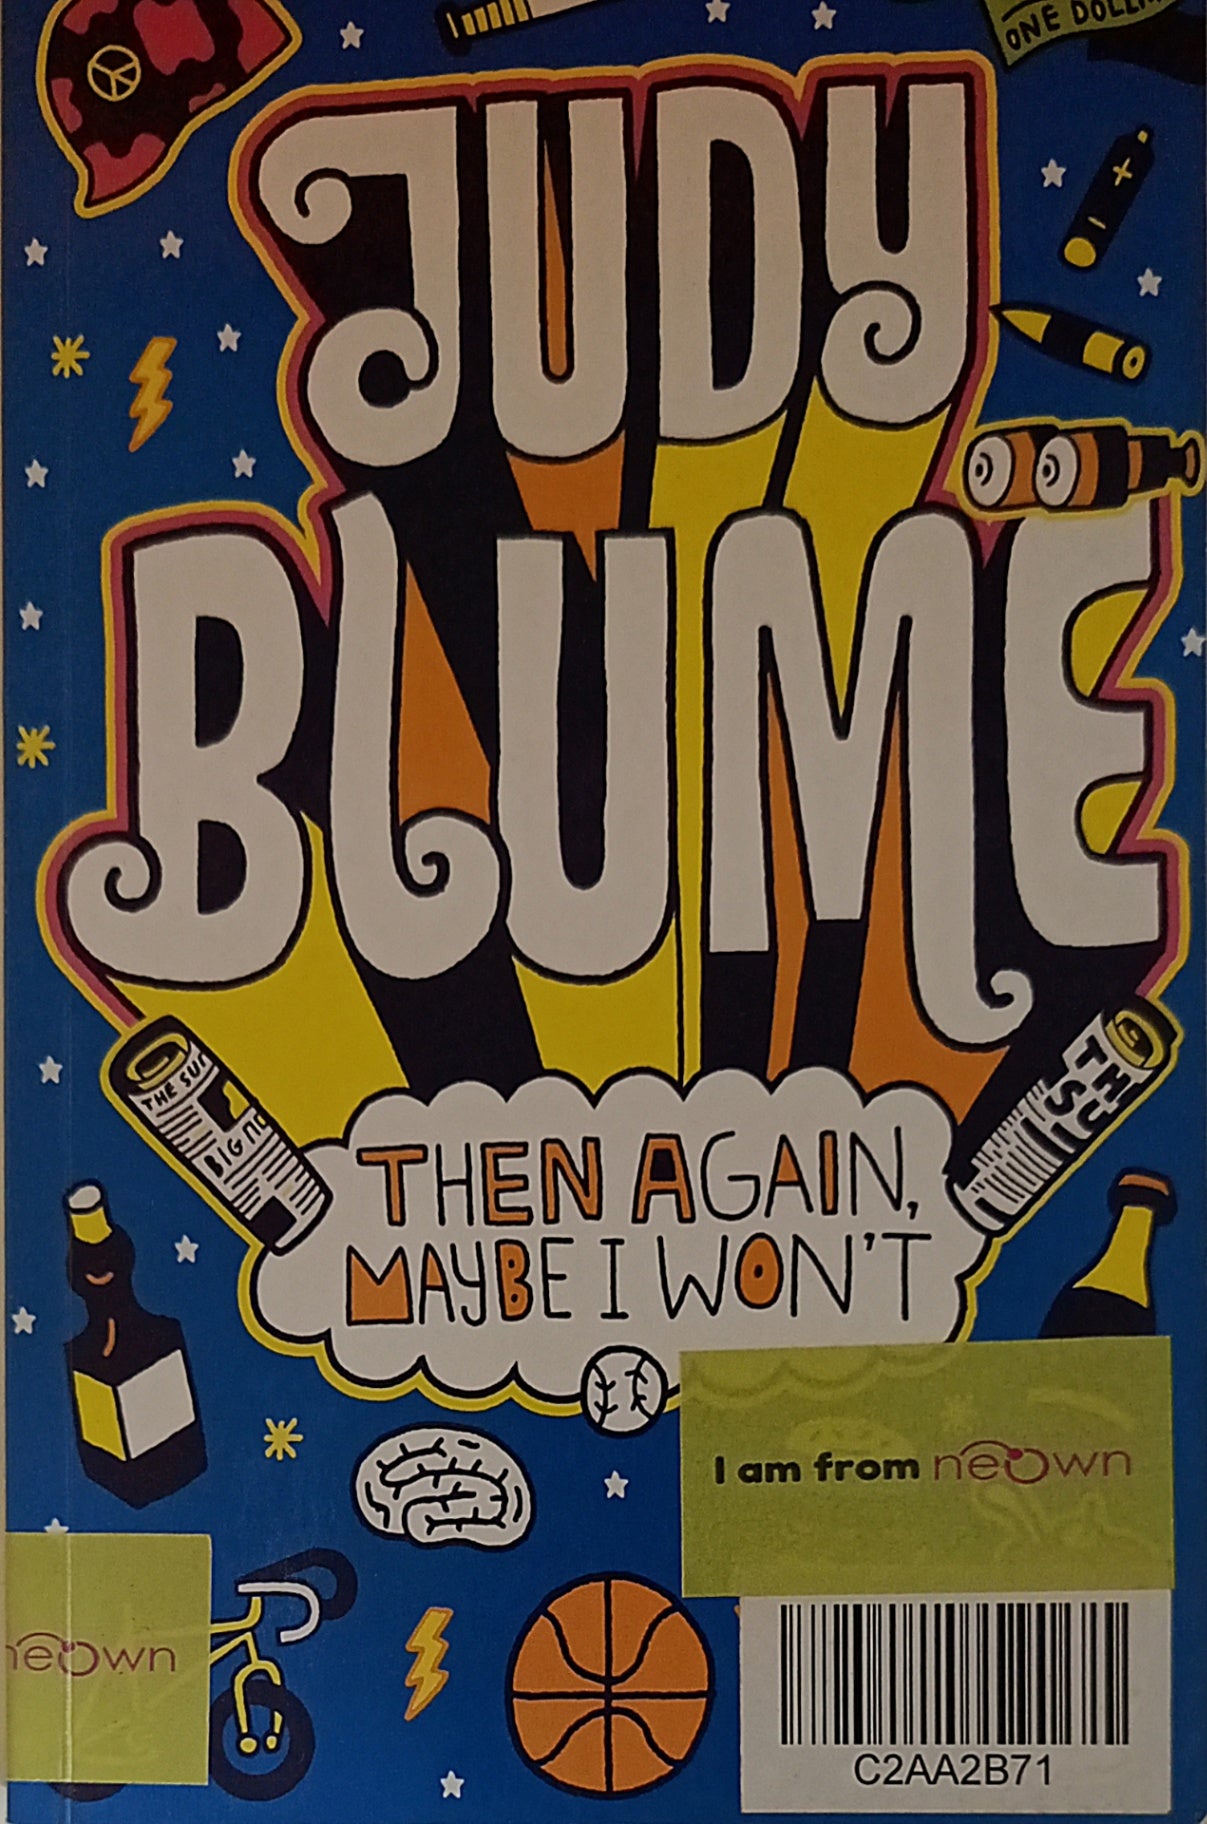 ONE DOLL
JUDY
BLUME
THE SUN
BIG
THE
SU
THEN AGAIN,
MAYBE I WON'T
I am from neown
neown
C2AA2B71